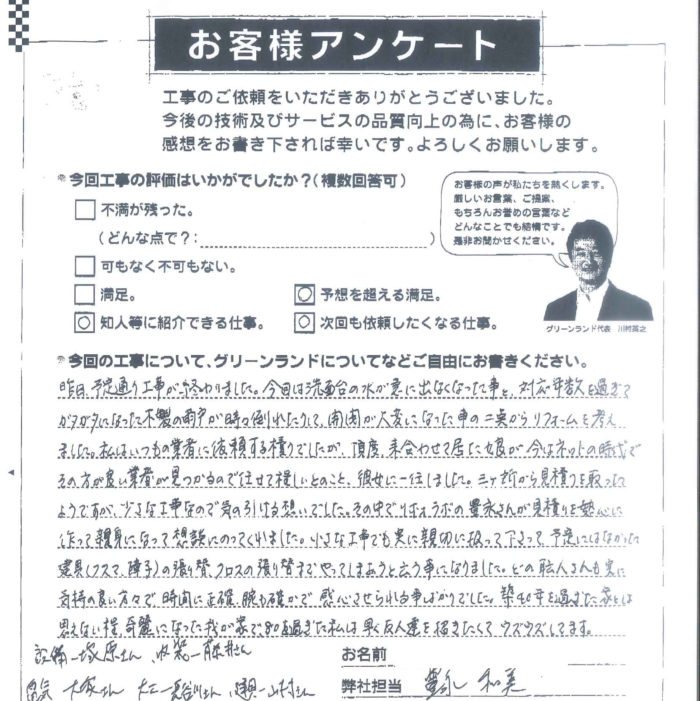 お客様アンケート
工事のご依頼をいただきありがとうございました。
今後の技術及びサービスの品質向上の為に、お客様の
感想をお書き下されば幸いです。よろしくお願いします。
今回工事の評価はいかがでしたか？(複数回答可)
不満が残った。
(どんな点で？: )
可もなく不可もない。
満足。
予想を超える満足。
知人等に紹介できる仕事。
次回も依頼したくなる仕事。
お客様の声が私たちを熱くします。
厳しいお言葉、ご提案、
もちろんお誉めの言葉など
どんなことでも結構です。
是非お聞かせください。
グリーンランド代表 川村英之
今回の工事について、グリーンランドについてなどご自由にお書きください。
昨日、予定通り工事が終わりました。今回は洗面台の水が急に出なくなった事と、対応年数を過ぎて
ガタガタになった木製の雨戸が時々倒れたりして、開閉が大変になった事の二点からリフォームを考え
ました。私はいつもの業者に依頼する積りでしたが、丁度、来合わせて居た娘が今はネットの時代で
その方が良い業者が見つかるので任せて欲しいとのこと、彼女に一任しました。三ヶ所から見積りを取った
ようですが、小さな工事なので気の引ける想いでした。その中でリフォラボの豊永さんが見積りを熱心に
作って親身になって想談にのってくれました。小さな工事でも実に親切に扱って下さって、予定にはなかった
建具(フスマ、障子)の張り替、クロスの張り替までやってしまおうと云う事になりました。どの職人さんも実に
気持の良い方々で、時間に正確、腕も確かで感心させられる事ばかりでした。築40年を過ぎた家とは
思えない程、奇麗になった我が家で、80を過ぎた私は早く友人達を招きたくてウズウズしてます。
設備─塚原さん、内装─藤井さん
電気 大塚さん 大工─長谷川さん、建具─山村さん
お名前
弊社担当 豊永 和美